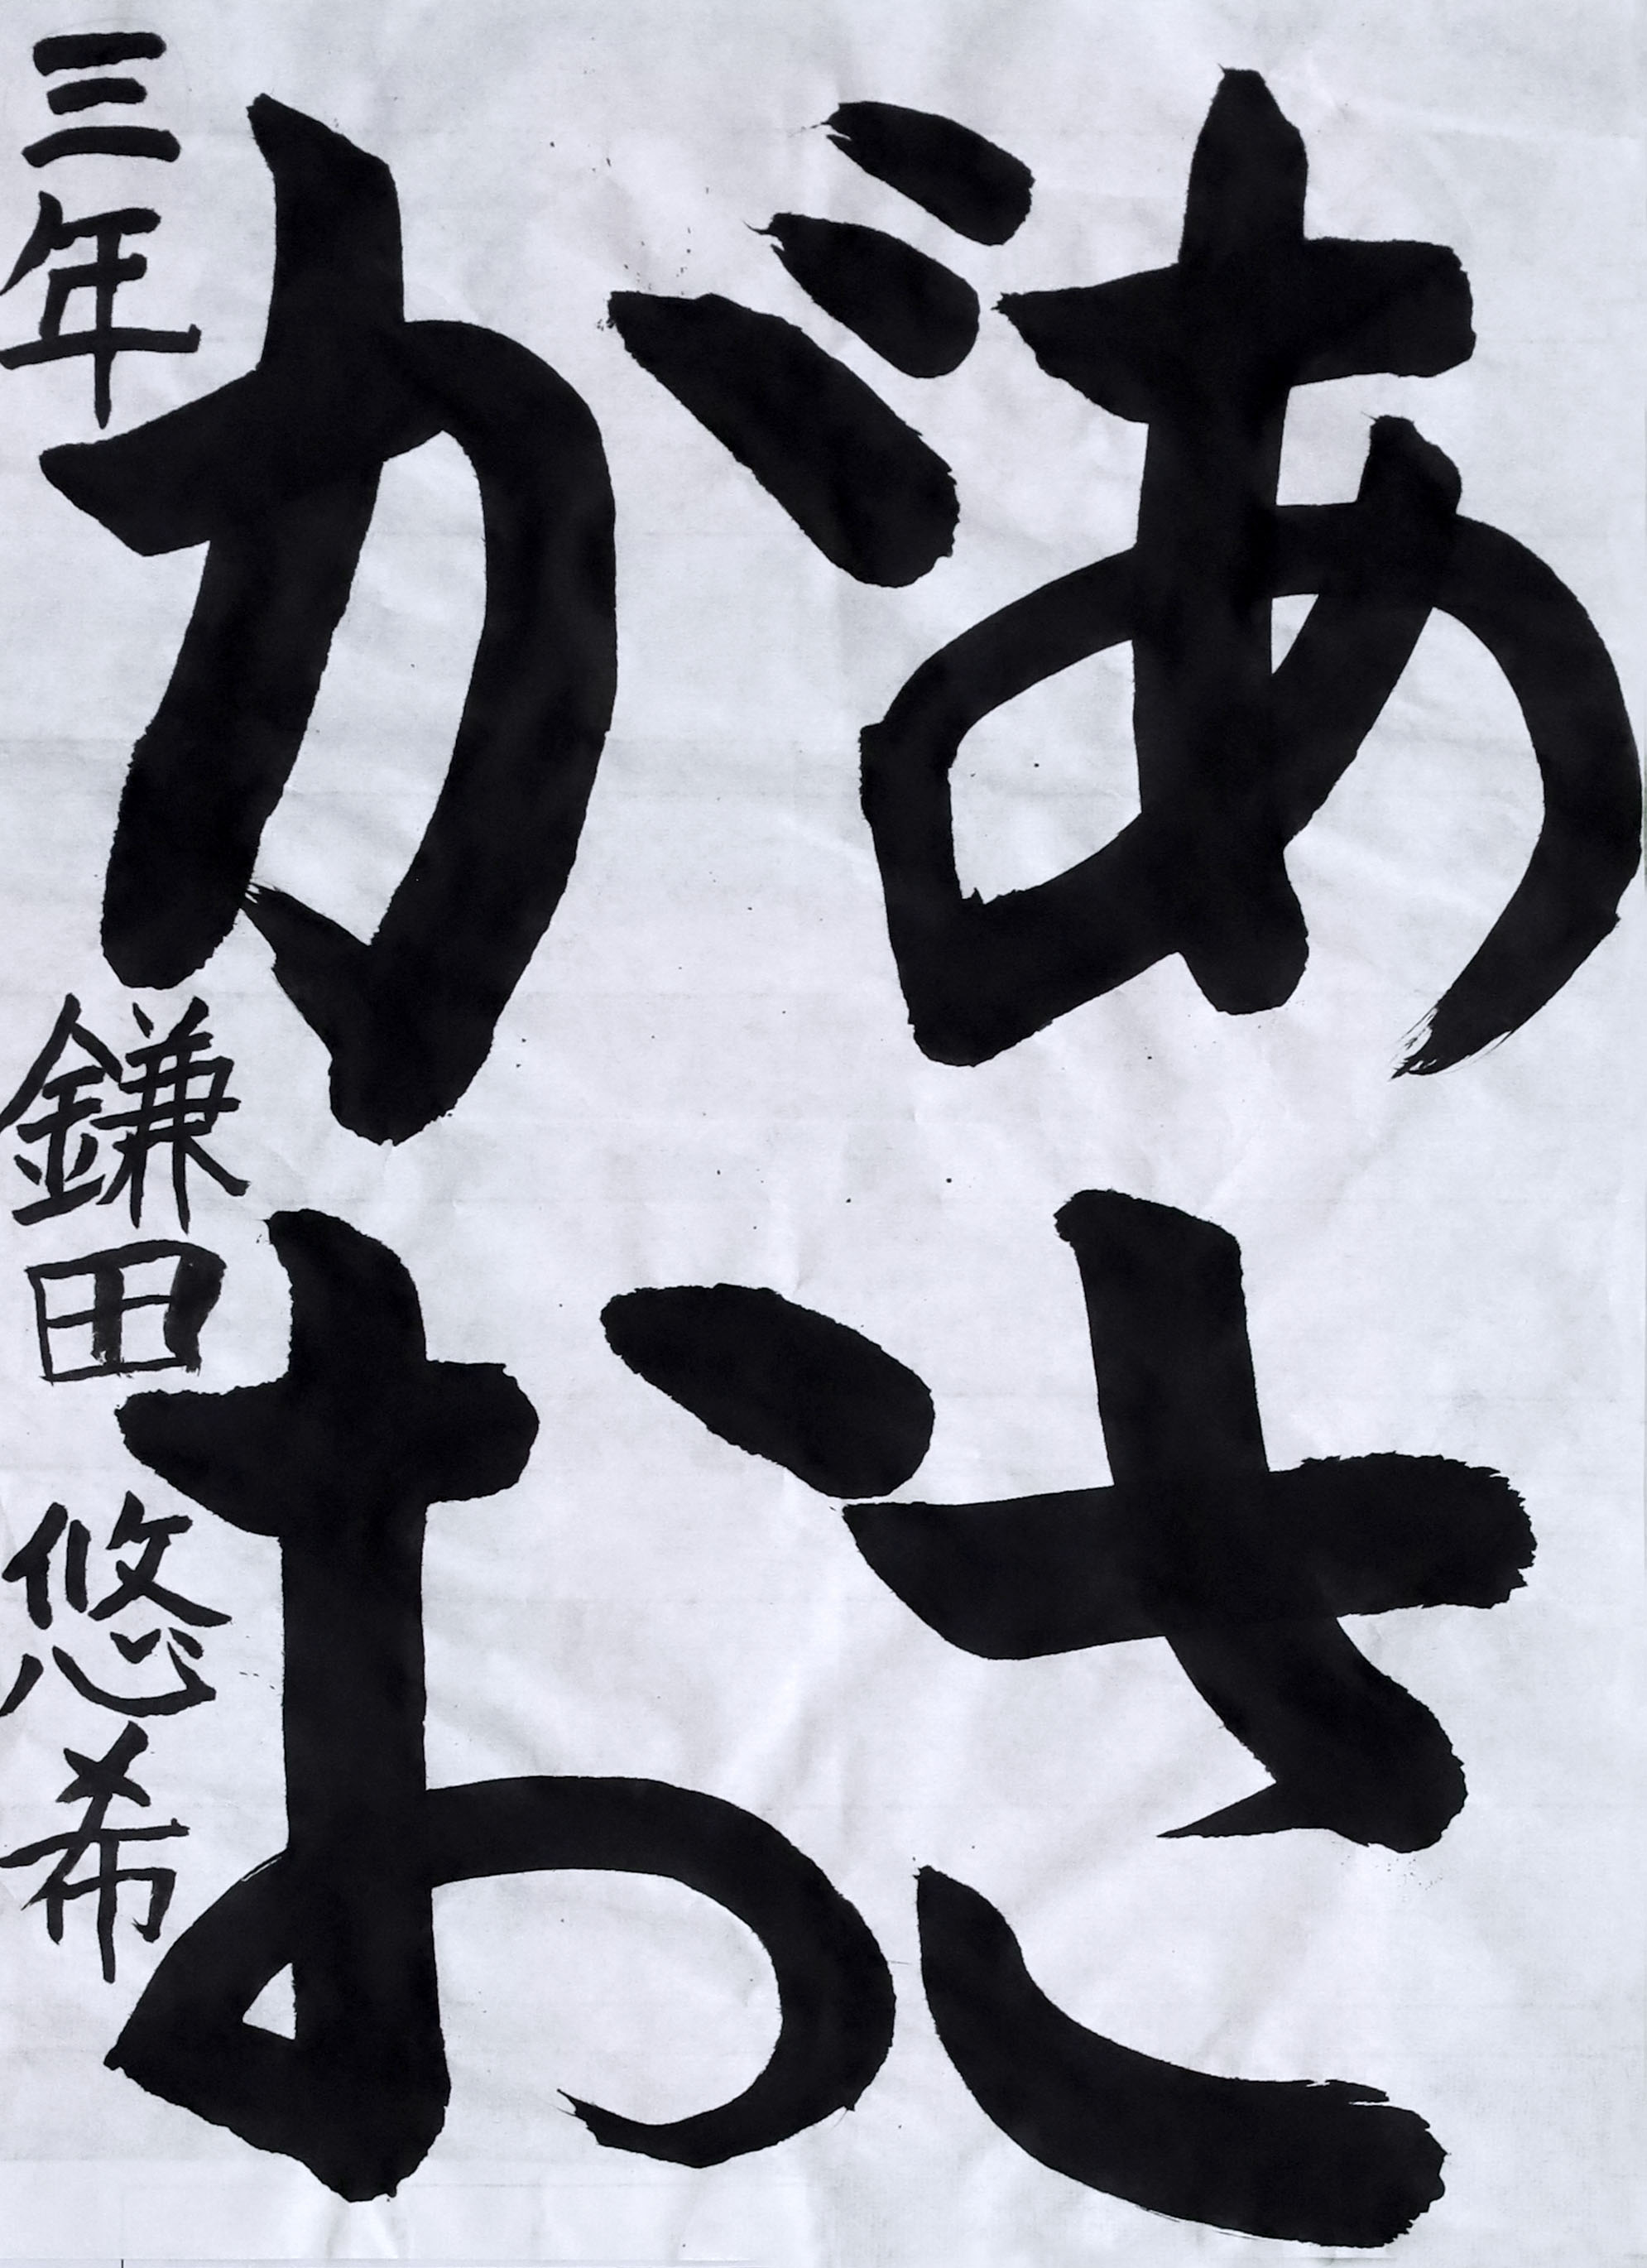 あさ
がお
三年 鎌田 悠希